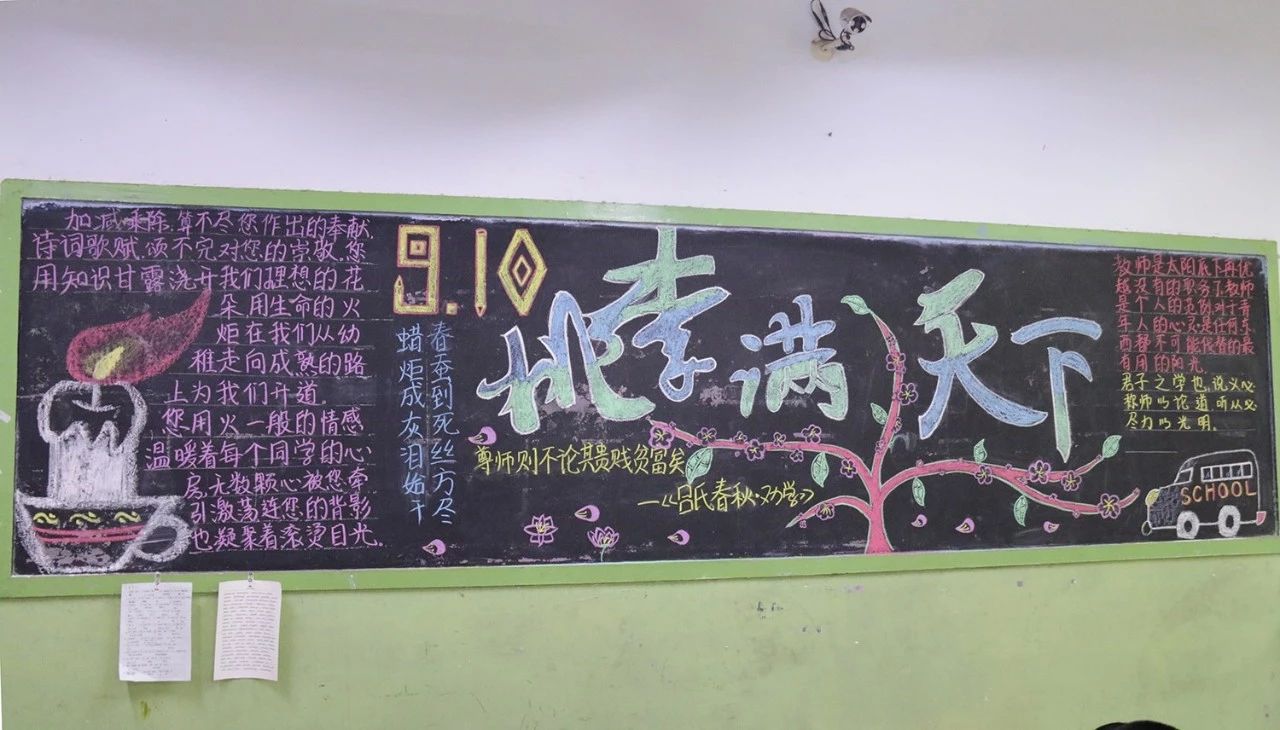 加减乘除,算不尽您作出的奉献
诗词歌赋,颂不完对您的崇敬,您
用知识甘露浇开我们理想的花
朵用生命的火
炬在我们从幼
稚走向成熟的路
上为我们开道.
您用火一般的情感
温暖着每个同学的心
房,无数颗心被您牵
引激荡连您的背影
也凝聚着滚烫目光.
9.10
春蚕到死丝方尽
蜡炬成灰泪始干
桃李满天下
尊师则不论其贵贱贫富矣
—《吕氏春秋·劝学》
教师是太阳底下再优
越没有的职务了教师
是个人的范例对于青
年人的心灵是任何东
西都不可能代替的最
有用的阳光.
君子之学也,说义必
称师以论道,听从必
尽力以光明.
SCHOOL